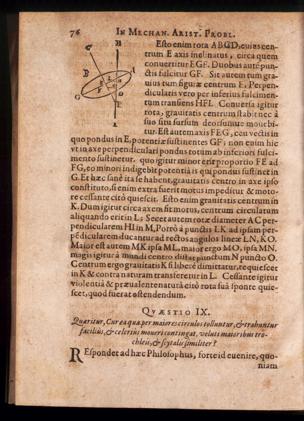 76 IN MECHAN. ARIST. PROBL.
Esto enim rota ABCD, cuius cen-
trum E axis inclinatus, circa quem
conuertitur EGF. Duobus autē pun-
ctis fulcitur GF. Sit autem tum gra-
uius tum figuræ centrum E. Perpen-
dicularis vero per inferius fulcimen-
tum transiens HFI. Conuersa igitur
rota, grauitatis centrum stabit nec à
suo situ sursum deorsumue mouebi-
tur. Est autem axis FEG, ceu vectis in
quo pondus in E, potentiæ sustinentes GF; non enim hic
vt in axe perpendiculari pondus totum ab inferiori fulci-
mento sustinetur. quo igitur minor erit proportio FE ad
FG, eo minori indigebit potentia is qui pondus sustinet in
G. Et hæc sanè ita se habent, grauitatis centro in axe ipso
constituto, si enim extra fuerit motus impeditur & moto-
re cessante citò quiescit. Esto enim grauitatis centrum in
K. Dum igitur circa axem fit motus, centrum circulatum
aliquando erit in L; Secet autem rotæ diameter AC per-
pendicularem HI in M, Porrò à punctis LK ad ipsam per-
pēdicularem ducantur ad rectos angulos lineæ LN, KO.
Maior est autem MK ipsa ML, maior ergo MO, ipsa MN.
magis igitur à mundi centro distat punctum N puncto O.
Centrum ergo grauitatis K si liberè dimittatur, requiescet
in K & contra naturam transferetur in L. Cessante igitur
violentiâ & præualente naturâ eiò rota suâ sponte quie-
scet, quod fuerat ostendendum.
QVÆSTIO IX.
Quæritur, Cur ea quæ per maiores circulos tolluntur, & trahuntur
facilius, & celerius moueri contingat, veluti maioribus tro-
chleis, & scytalis similiter?
REspondet ad hæc Philosophus, forte id euenire, quo-
niam